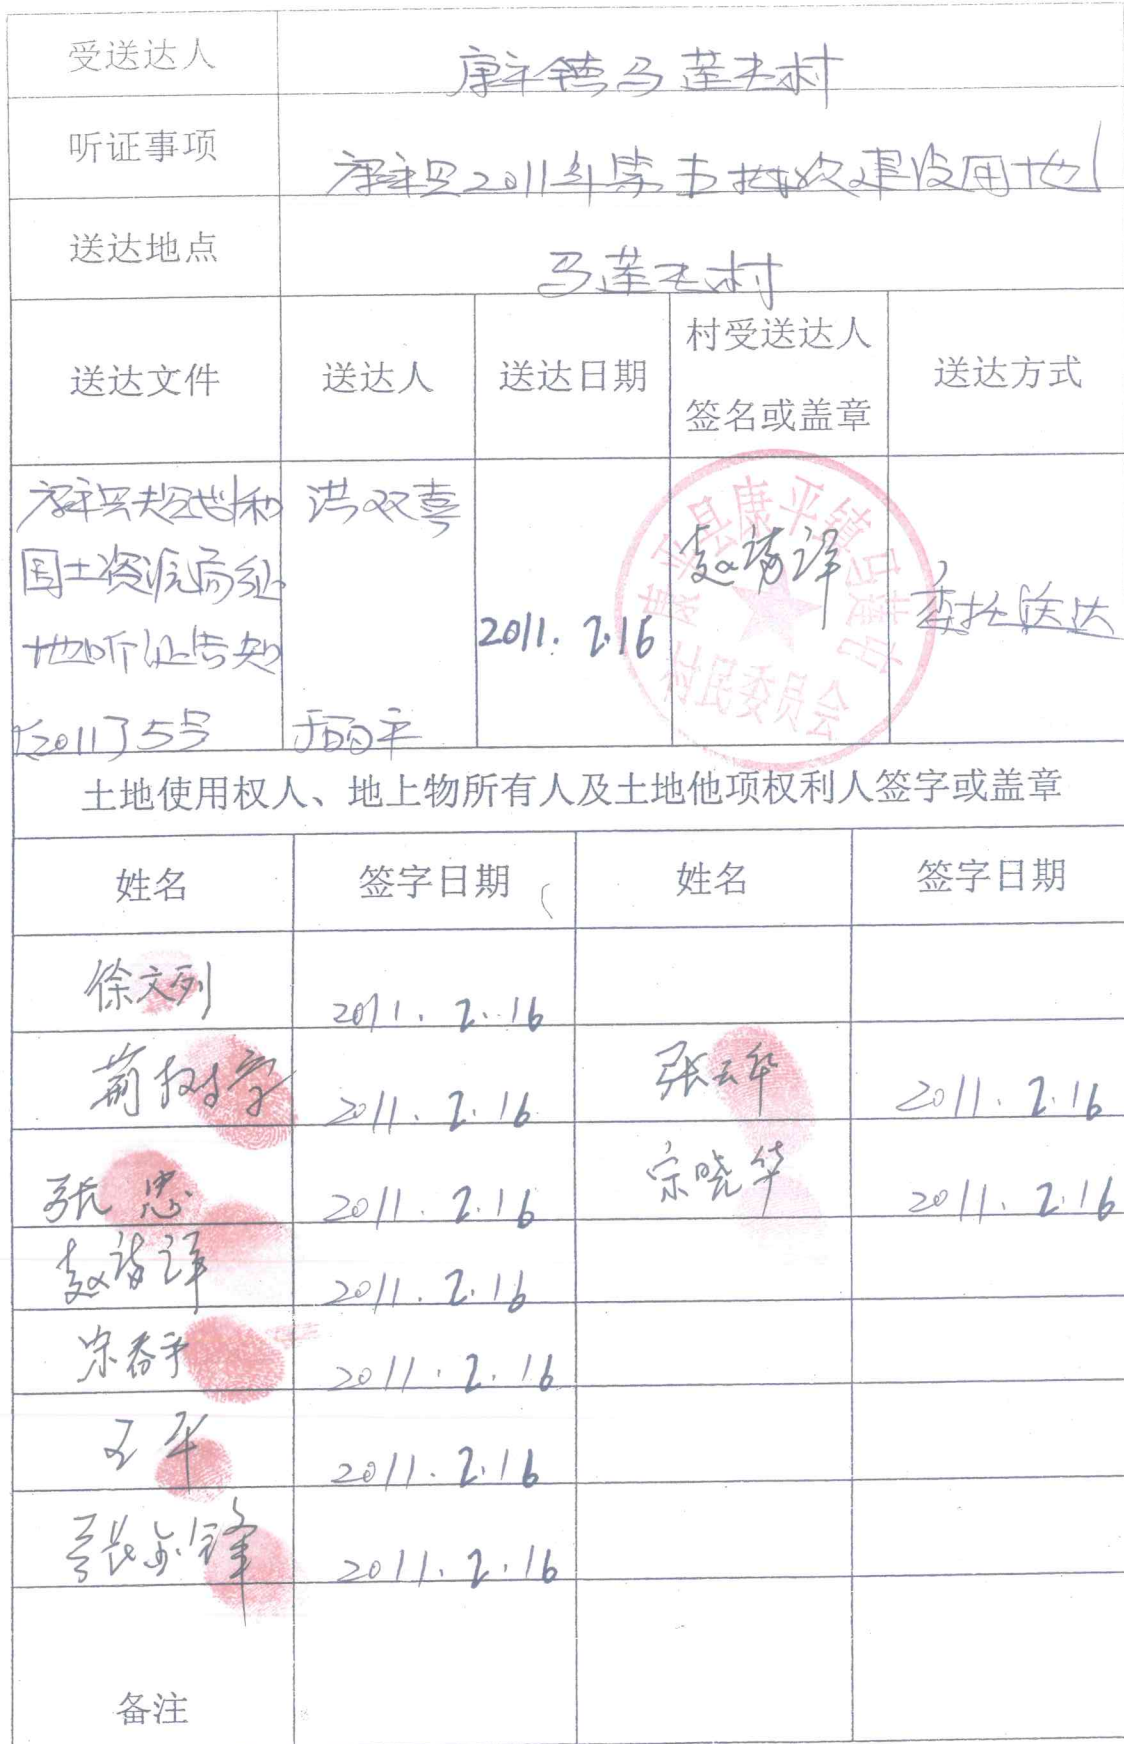 受送达人 康平镇马莲屯村
听证事项 康平县2011年第五批次建设用地
送达地点 马莲屯村
送达文件 送达人 送达日期 村受送达人 签名或盖章 送达方式
康平县规划和 洪双喜
国土资源局征
地听证告知 2011.2.16 委托送达
[2011]5号
康平县康平镇马莲屯
村民委员会
土地使用权人、地上物所有人及土地他项权利人签字或盖章
姓名 签字日期 姓名 签字日期
徐文列 2011.2.16
荊树 2011.2.16 张云华 2011.2.16
张忠 2011.2.16 宗晓华 2011.2.16
2011.2.16
宗春 2011.2.16
王平 2011.2.16
张金锋 2011.2.16
备注